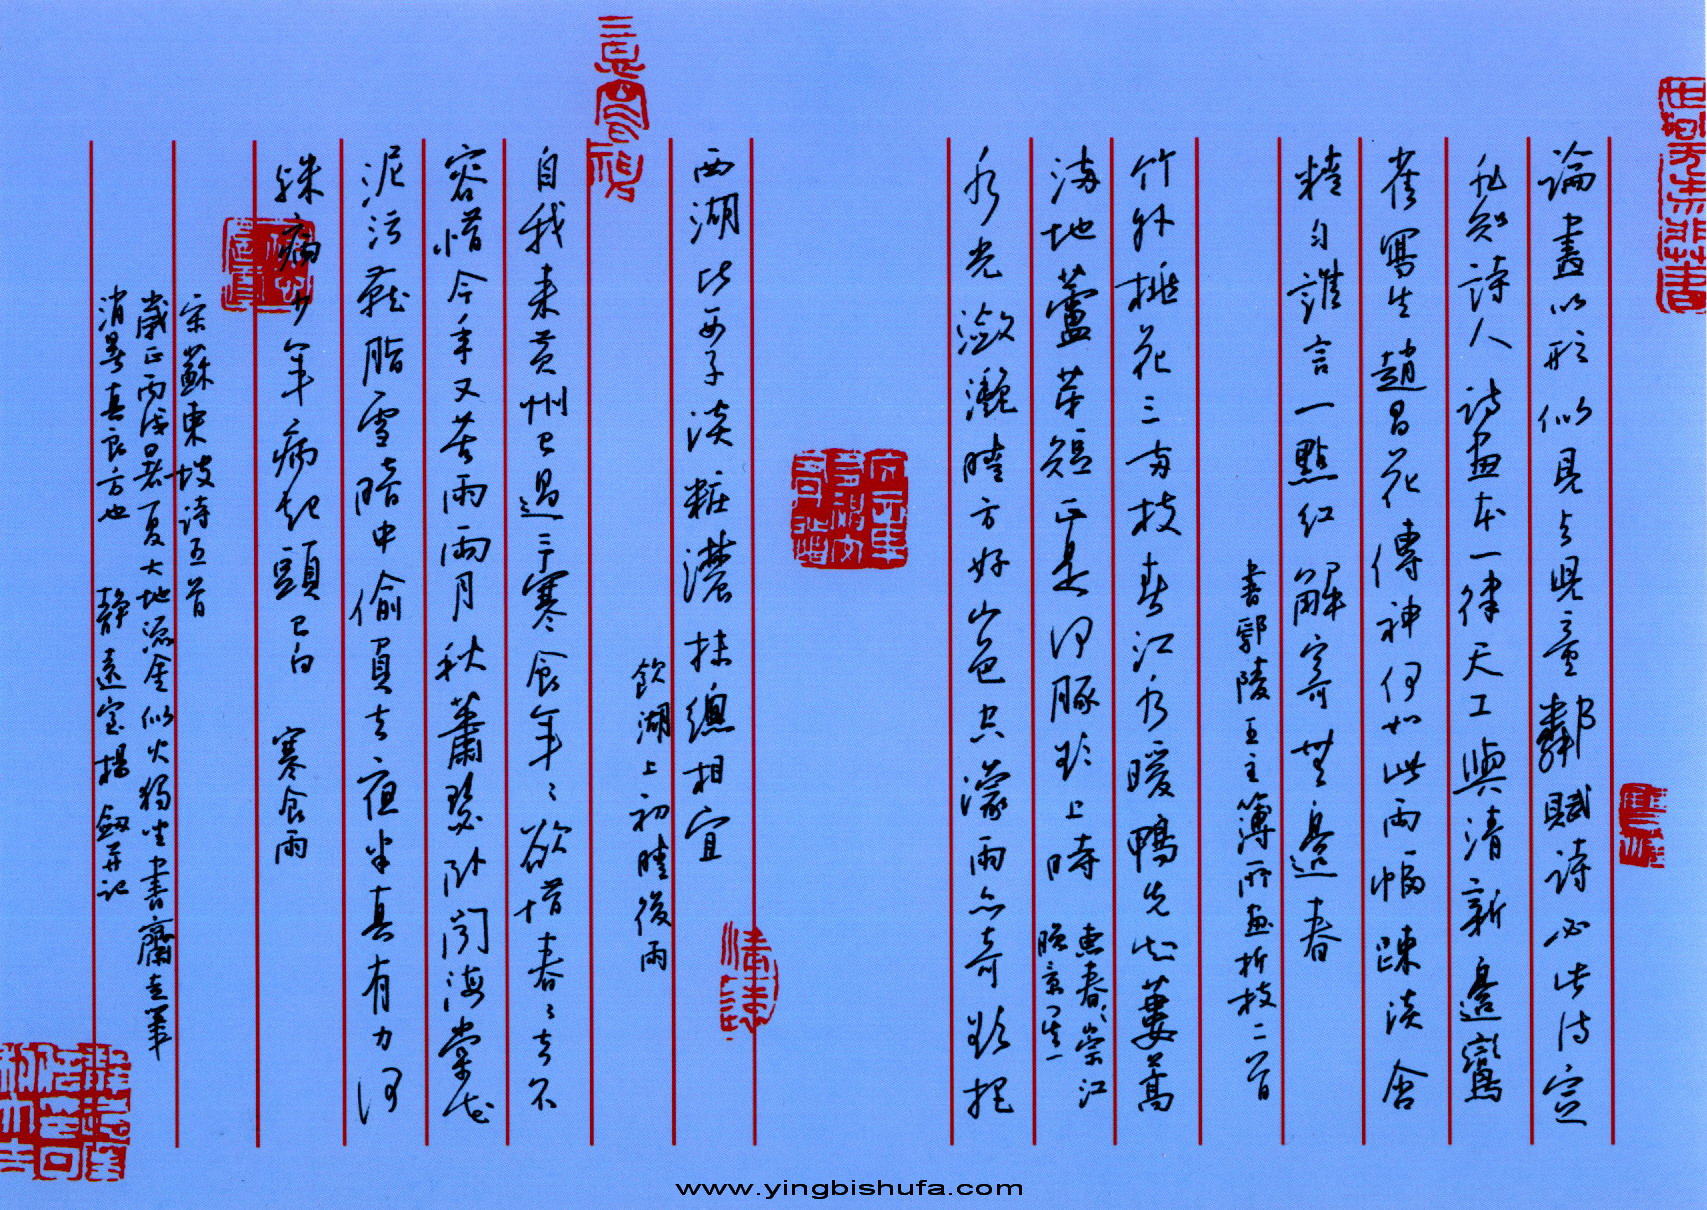 論畫以形似見與兒童鄰賦詩必此詩定
非知詩人詩畫本一律天工與清新邊鸞
雀寫生趙昌花傳神何如此兩幅疎淡含
精勻誰言一點紅解寄無邊春
書鄢陵王主簿所畫折枝二首
竹外桃花三兩枝春江水暖鴨先知蔞蒿
滿地蘆芽短正是河豚欲上時
惠春崇江
晚景二首一
水光瀲灩晴方好山色空濛雨亦奇欲把
西湖比西子淡粧濃抹總相宜
飲湖上初晴後雨
自我來黃州已過三寒食年〻欲惜春〻去不
容惜今年又苦雨兩月秋蕭瑟卧聞海棠花
泥污燕脂雪暗中偷負去夜半真有力何
殊病少年病起頭已白 寒食雨
宋蘇東坡詩五首
歲正丙戌暑夏大地流金似火獨坐書齋走筆
消暑真良方也 靜遠室楊劍并記
www.yingbishufa.com